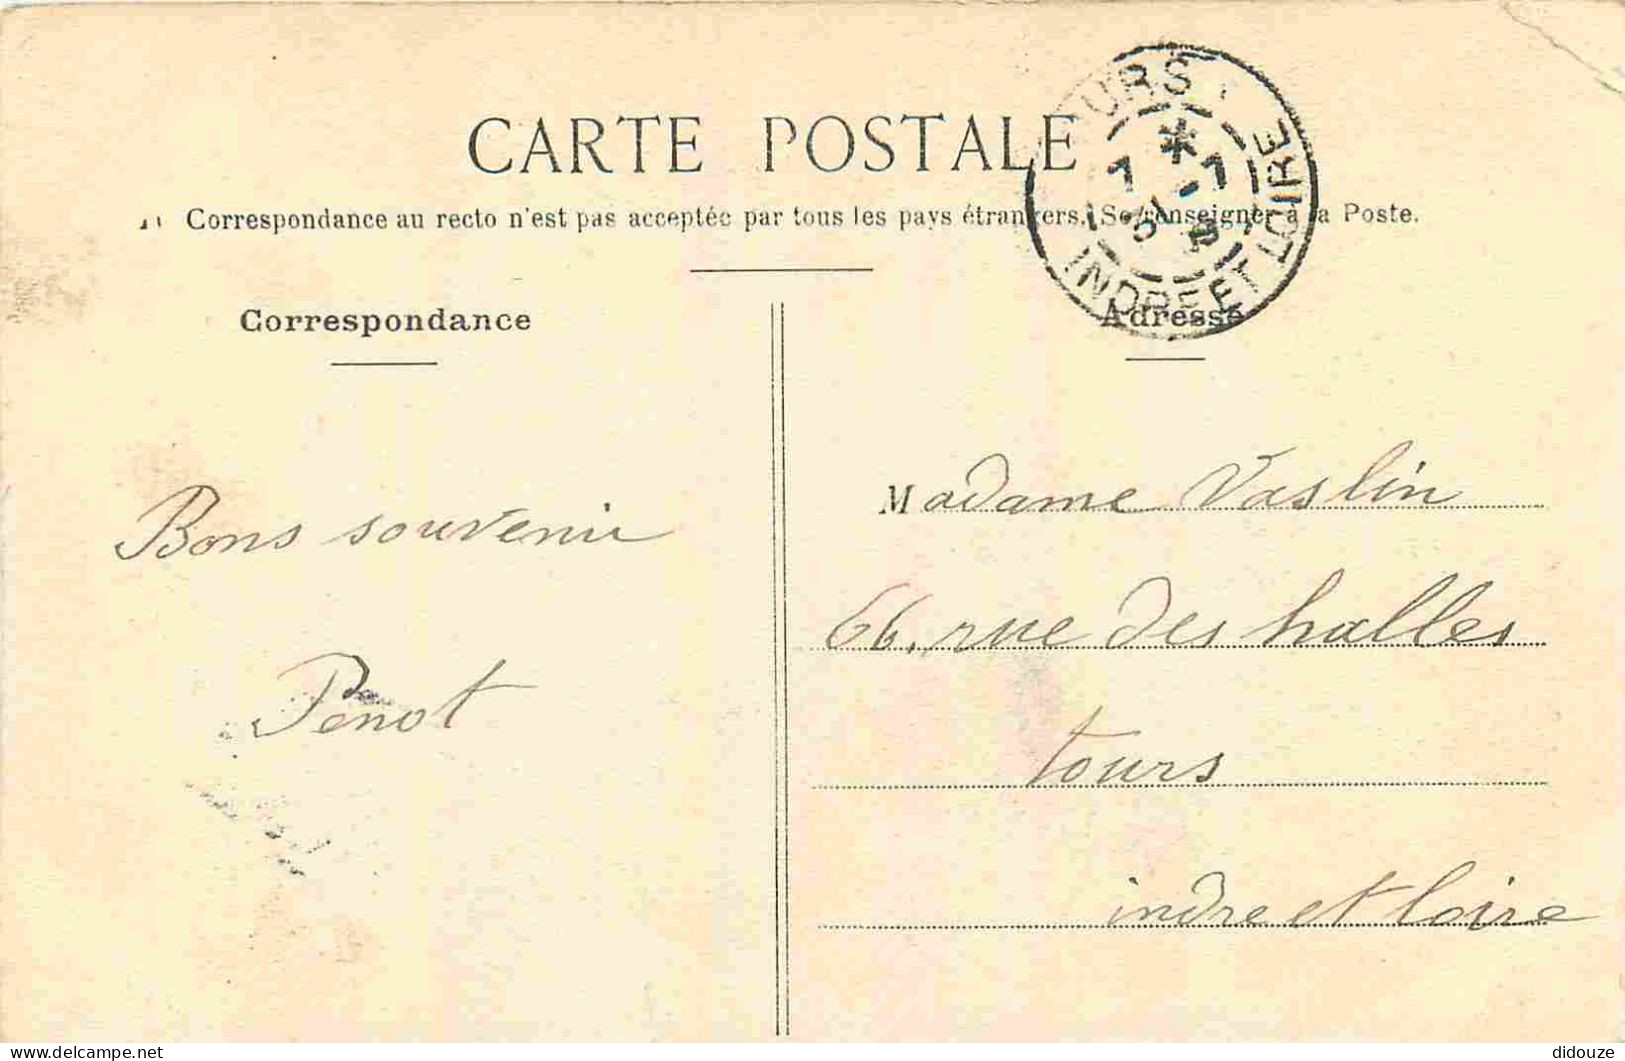 CARTE POSTALE
Correspondance au recto n'est pas acceptée par tous les pays étrangers. Se renseigner à la Poste.
TOURS
INDRE ET LOIRE
Correspondance
Adresse
Bons souvenir
Penot
Madame Vaslin
66, rue des halles
tours
indre et loire
delcampe.net
didouze